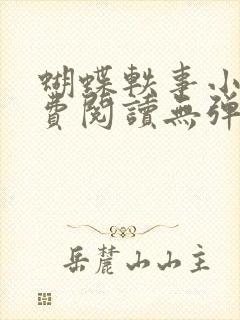 蝴蝶軼事小
費閱讀無彈
岳麓山山主